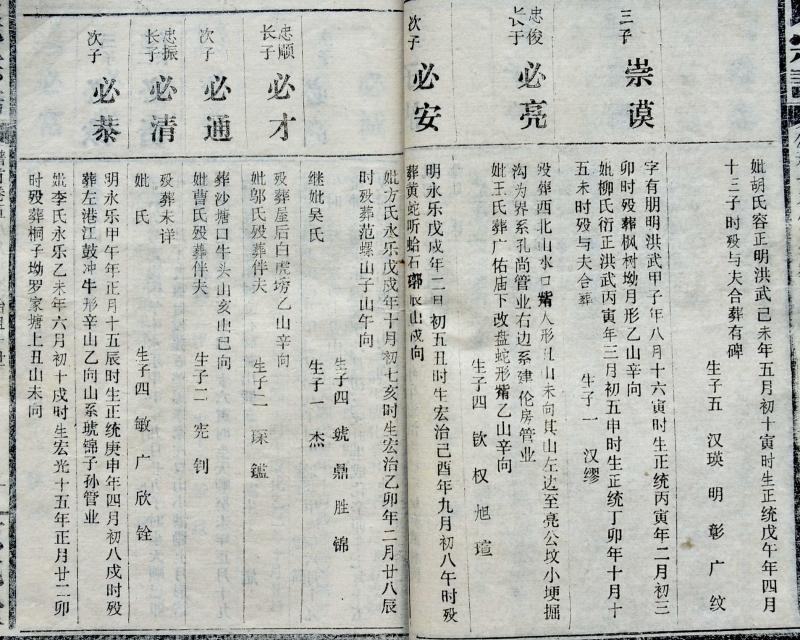 妣胡氏容正明洪武己未年五月初十寅时生正统戊午年四月
十三子时殁与夫合葬有碑
生子五 汉瑛 明 彰 广 纹
三子
崇谟
字有朋明洪武甲子年八月十六寅时生正统丙寅年二月初三
卯时殁葬枫树坳月形乙山辛向
妣柳氏衍正洪武丙寅年三月初五申时生正统丁卯年十月十
五未时殁与夫合葬
生子一 汉缪
忠俊
长子
必亮
殁葬西北山水口觜人形丑山未向其山左边至亮公坟小埂掘
沟为界系孔尚管业右边系建伦房管业
妣王氏葬广佑庙下改盘蛇形觜乙山辛向
生子四 钦 权 旭 瑄
次子
必安
明永乐戊戌年二月初五丑时生宏治己酉年九月初八午时殁
葬黄蛇听蛤石
山戍向
妣方氏永乐戊戌年十月初七亥时生宏治乙卯年二月廿八辰
时殁葬范螺山子山午向
生子四 琥 鼎 胜 锦
继妣吴氏
生子一 杰
忠顺
长子
必才
殁葬屋后白虎塝乙山辛向
妣邬氏殁葬伴夫
生子二 琛 鑑
次子
必通
葬沙塘口牛头山亥山巳向
妣曹氏殁葬伴夫
生子二 宪 钊
忠振
长子
必清
殁葬未详
妣 氏
生子四 敏 广 欣 铨
次子
必恭
明永乐甲午年正月十五辰时生正统庚申年四月初八戍时殁
葬左港江鼓冲牛形辛山乙向山系琥锦子孙管业
妣李氏永乐乙未年六月初十戍时生宏光十五年正月廿二卯
时殁葬桐子坳罗家塘上丑山未向